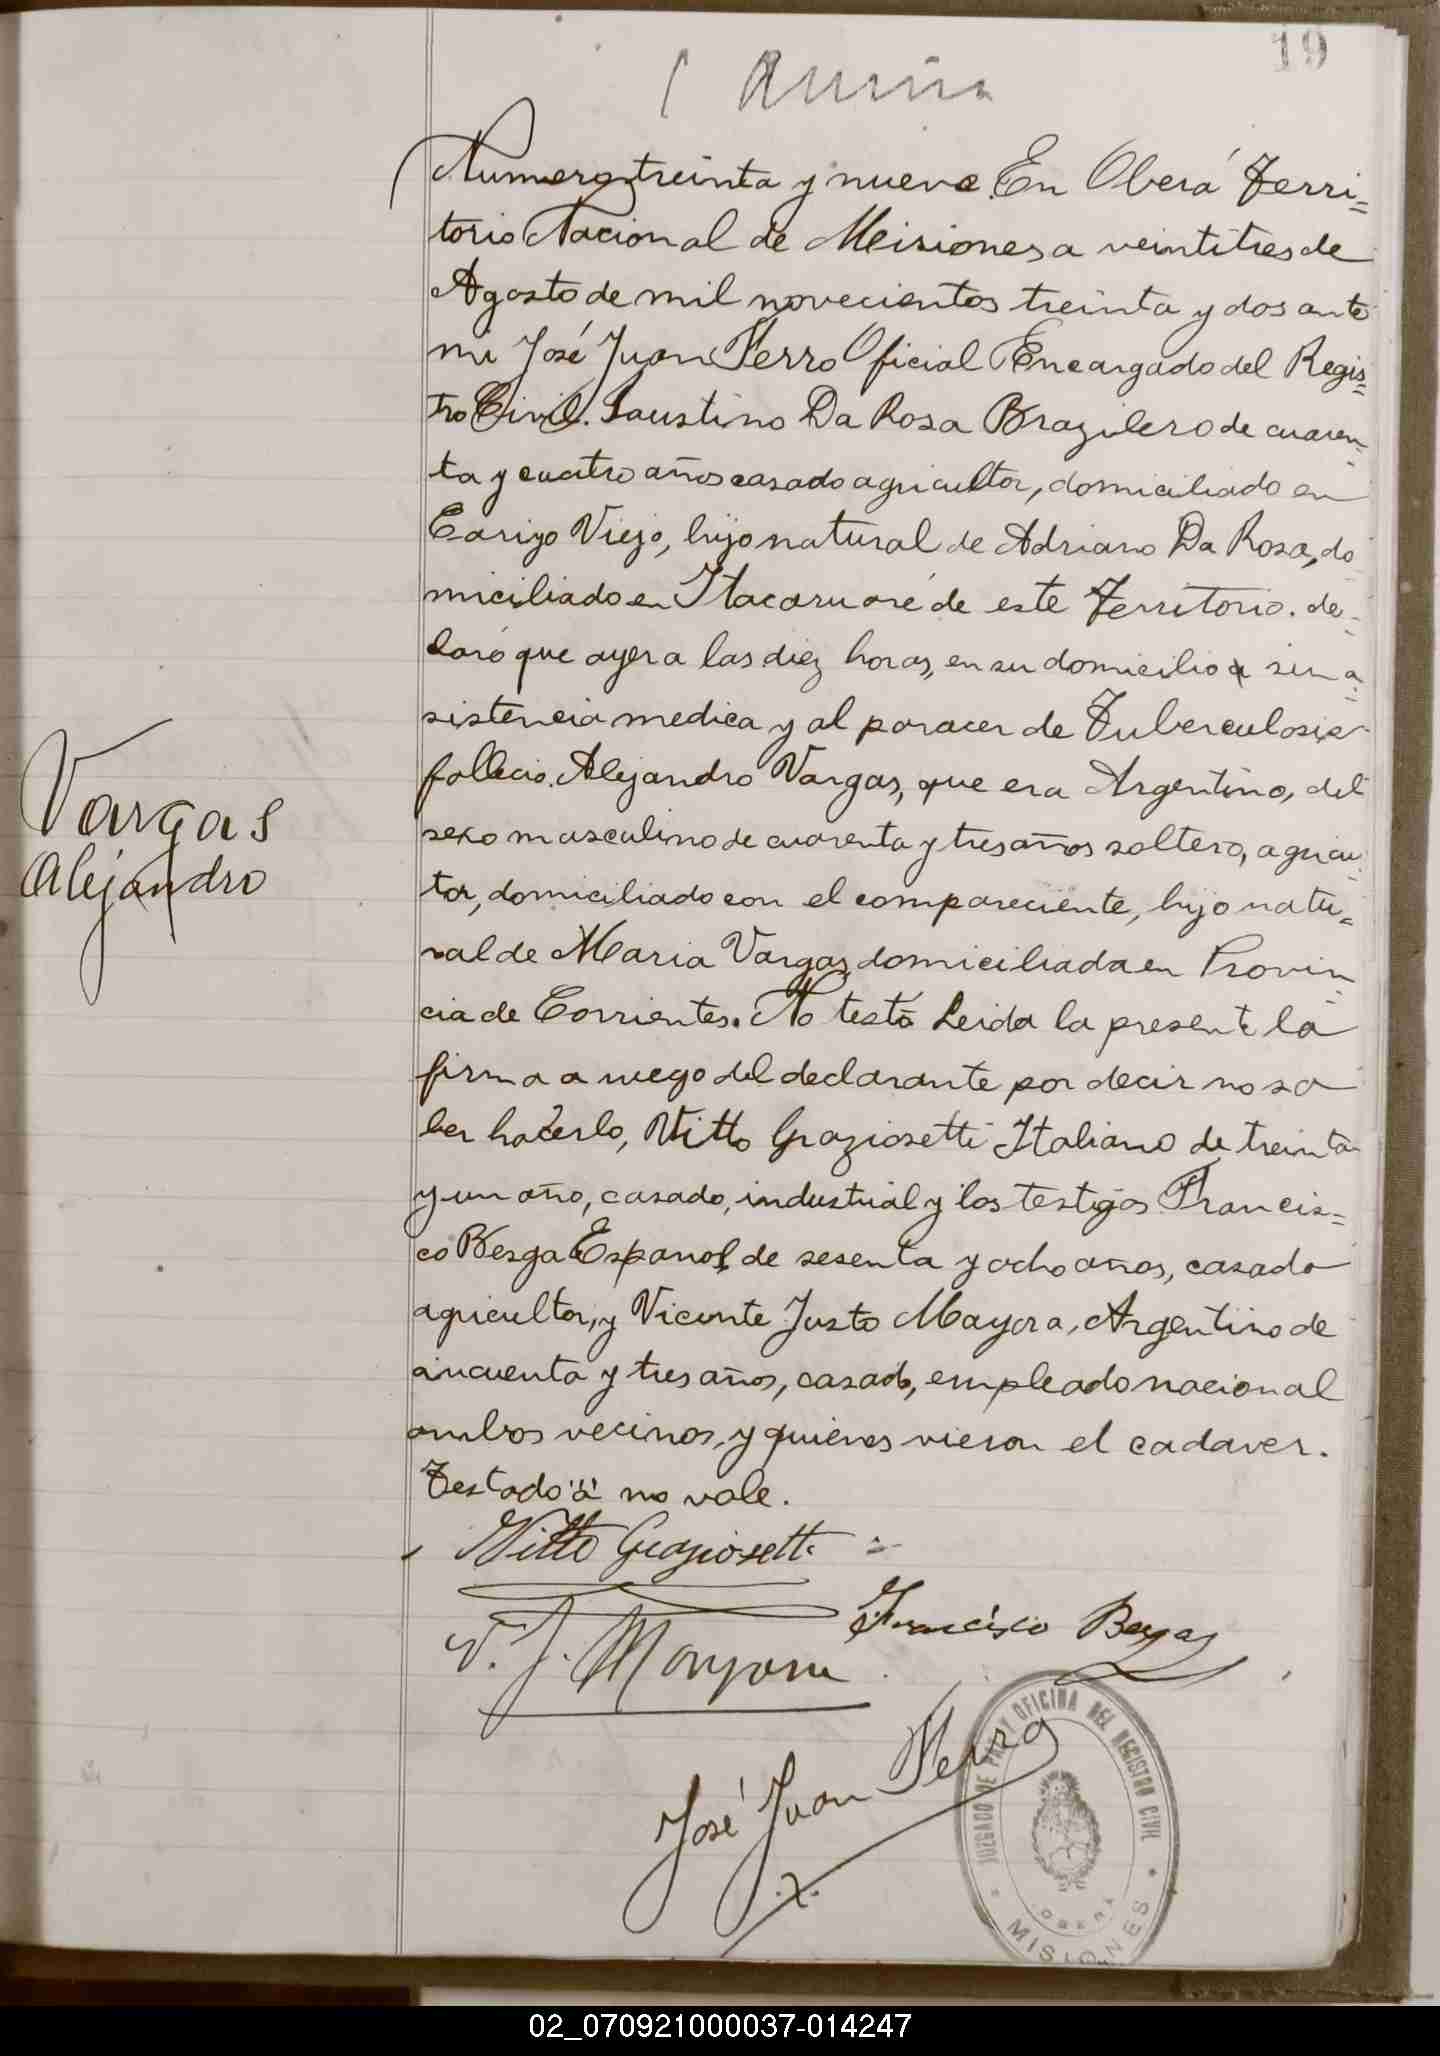 19
Numero treinta y nueve. En Oberá Terri=
torio Nacional de Misiones a veintitres de
Agosto de mil novecientos treinta y dos ante
mi José Juan Ferro Oficial Encargado del Regis=
tro Civil. Faustino Da Rosa Brazilero de cuaren=
ta y cuatro años casado agricultor, domiciliado en
Cerigo Viejo, hijo natural de Adriano Da Rosa, do
miciliado en Itacaruaré de este Territorio. de=
claró que ayer a las diez horas, en su domicilio a sin a=
sistencia medica y al paracer de Tuberculosis
fallecio. Alejandro Vargas, que era Argentino, del
sexo masculino de cuarenta y tres años soltero, agricu=
tor, domiciliado con el compareciente, hijo natu=
ral de Maria Vargas, domiciliada en Provin=
cia de Corrientes. No testó Leida la presente la
firma a ruego del declarante por decir no sa
ber hacerlo, Vitto Graziosetti Italiano de treinta
y un año, casado, industrial y los testigos Francis=
co Besga Español, de sesenta y ocho años, casado
agricultor, y Vicente Justo Mayora, Argentino de
cincuenta y tres años, casado, empleado nacional
ambos vecinos, y quienes vieron el cadaver.
Testado "a" no vale.
Vargas
Alejandro
Vitto Graziosetti
Francisco Besga
V. J. Mayora
José Juan Ferro
JUZGADO DE PAZ Y OFICINA DEL REGISTRO CIVIL
OBERÁ
MISIONES
02_070921000037-014247